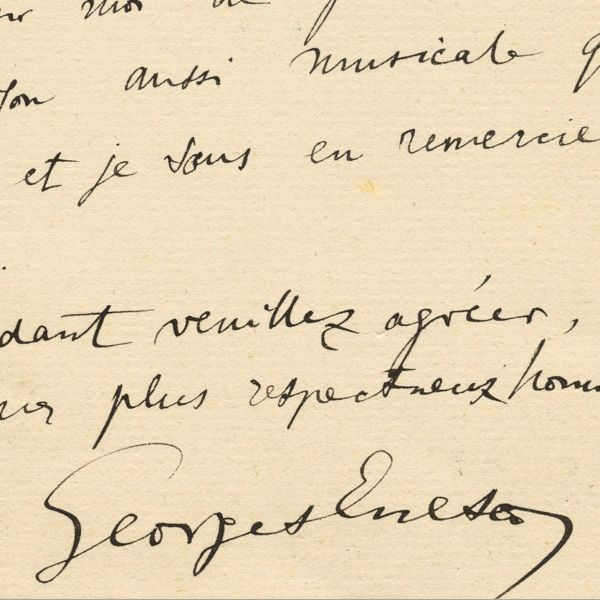 moi de
aussi musicale
et je vous en remercie
dant veuillez agréer,
plus respectueux hom
Georges Enesco